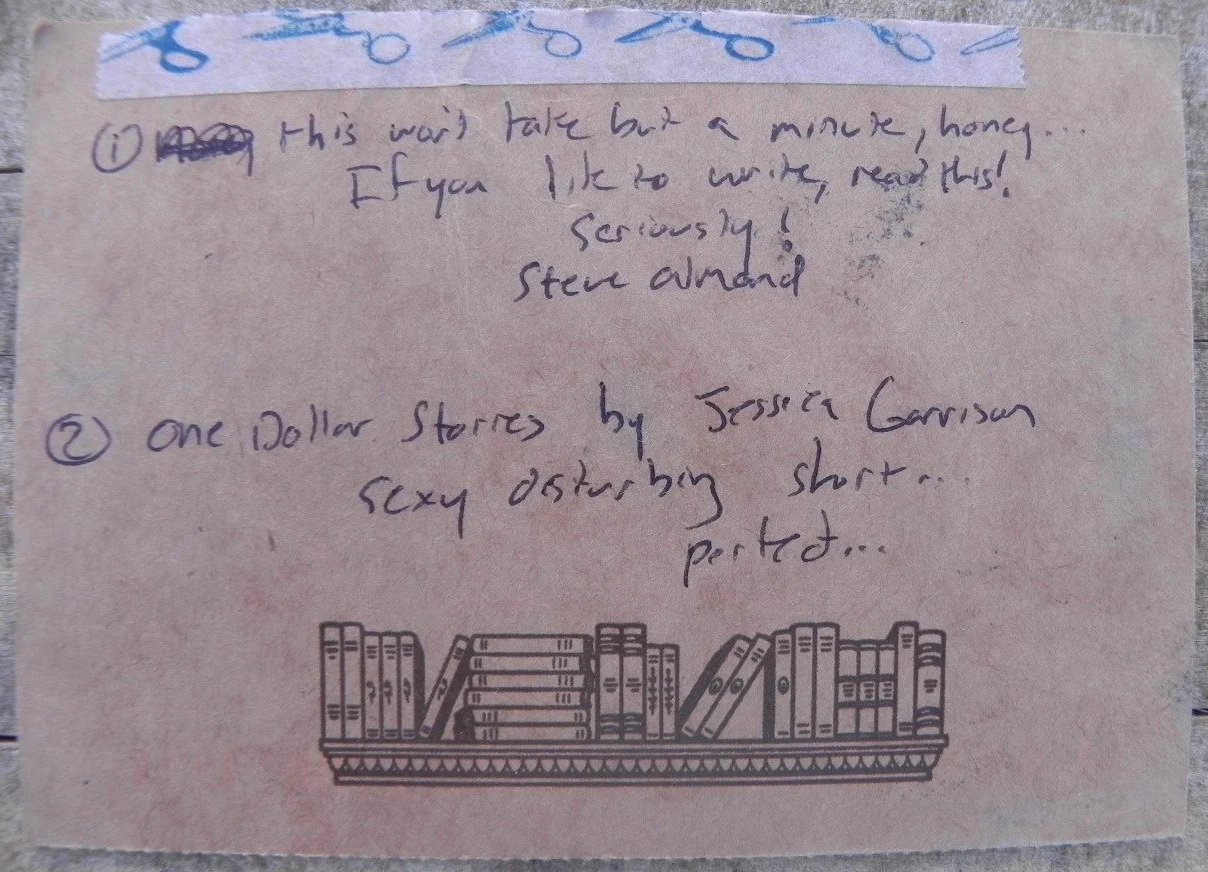 ① this won't take but a minute, honey...
If you like to write, read this!
seriously!
Steve Almond
② One Dollar Stories by Jessica Garrison
sexy disturbing short...
perfect...